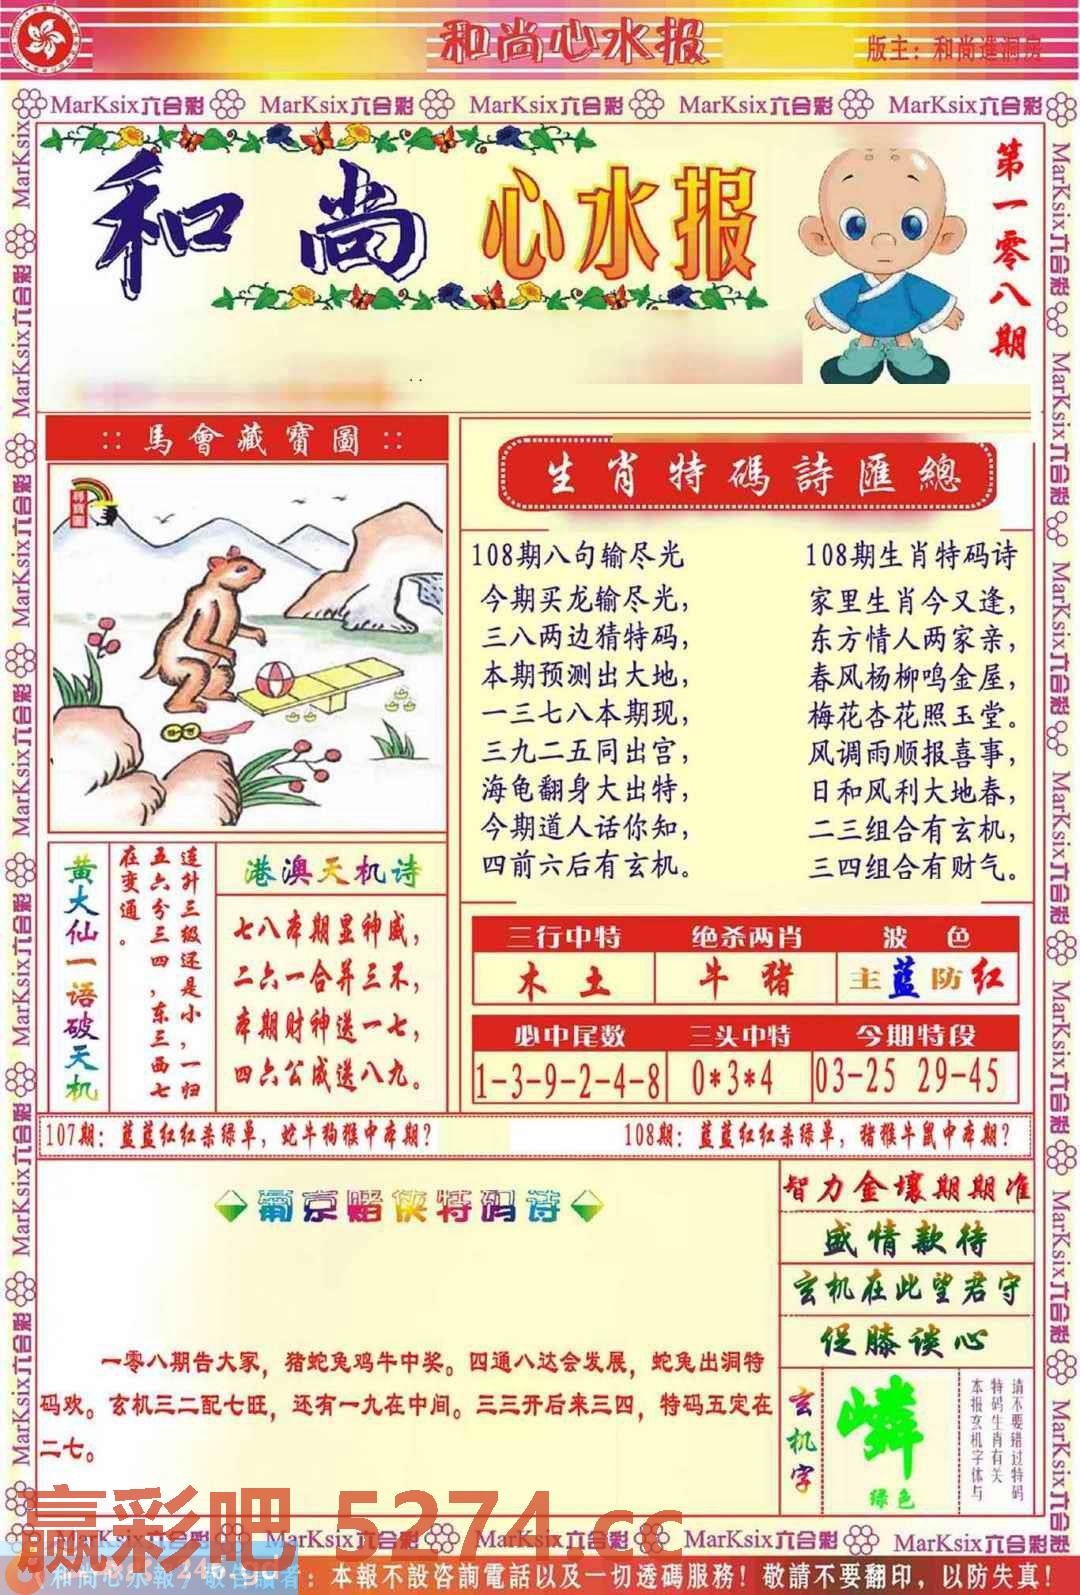 和尚心水报
版主：和尚進洞房
MarKsix六合彩 MarKsix六合彩 MarKsix六合彩 MarKsix六合彩 MarKsix六合彩
和尚心水报
第一零八期
馬會藏寶圖
尋寶圖
生肖特碼詩匯總
108期八句输尽光
今期买龙输尽光，
三八两边猜特码，
本期预测出大地，
一三七八本期现，
三九二五同出宫，
海龟翻身大出特，
今期道人话你知，
四前六后有玄机。
108期生肖特码诗
家里生肖今又逢，
东方情人两家亲，
春风杨柳鸣金屋，
梅花杏花照玉堂。
风调雨顺报喜事，
日和风利大地春，
二三组合有玄机，
三四组合有财气。
黄大仙一语破天机
连升三级还是小，一归
五六分三四，东三西七
在变通。
港澳天机诗
七八本期显神威，
二六一合并三不，
本期财神送一七，
四六公成送八九。
三行中特 绝杀两肖 波色
木土 牛猪 主蓝防红
必中尾数 三头中特 今期特段
1-3-9-2-4-8 0*3*4 03-25 29-45
107期：蓝蓝红红杀绿单，蛇牛狗猴中本期？
108期：蓝蓝红红杀绿单，猪猴牛鼠中本期？
葡京赌侠特码诗
一零八期告大家，猪蛇兔鸡牛中奖。四通八达会发展，蛇兔出洞特
码欢。玄机三二配七旺，还有一九在中间。三三开后来三四，特码五定在
二七。
智力金壤期期准
盛情款待
玄机在此望君守
促膝谈心
玄机字
嶙
绿色
请不要错过特码
特码生肖有关
本报玄机字体与
赢彩吧 5274.cc
MarKsix六合彩 MarKsix六合彩 MarKsix六合彩 MarKsix六合彩 MarKsix六合彩
246.gd
和尚心水報 敬告讀者：本報不設咨詢電話以及一切透碼服務！敬請不要翻印，以防失真！